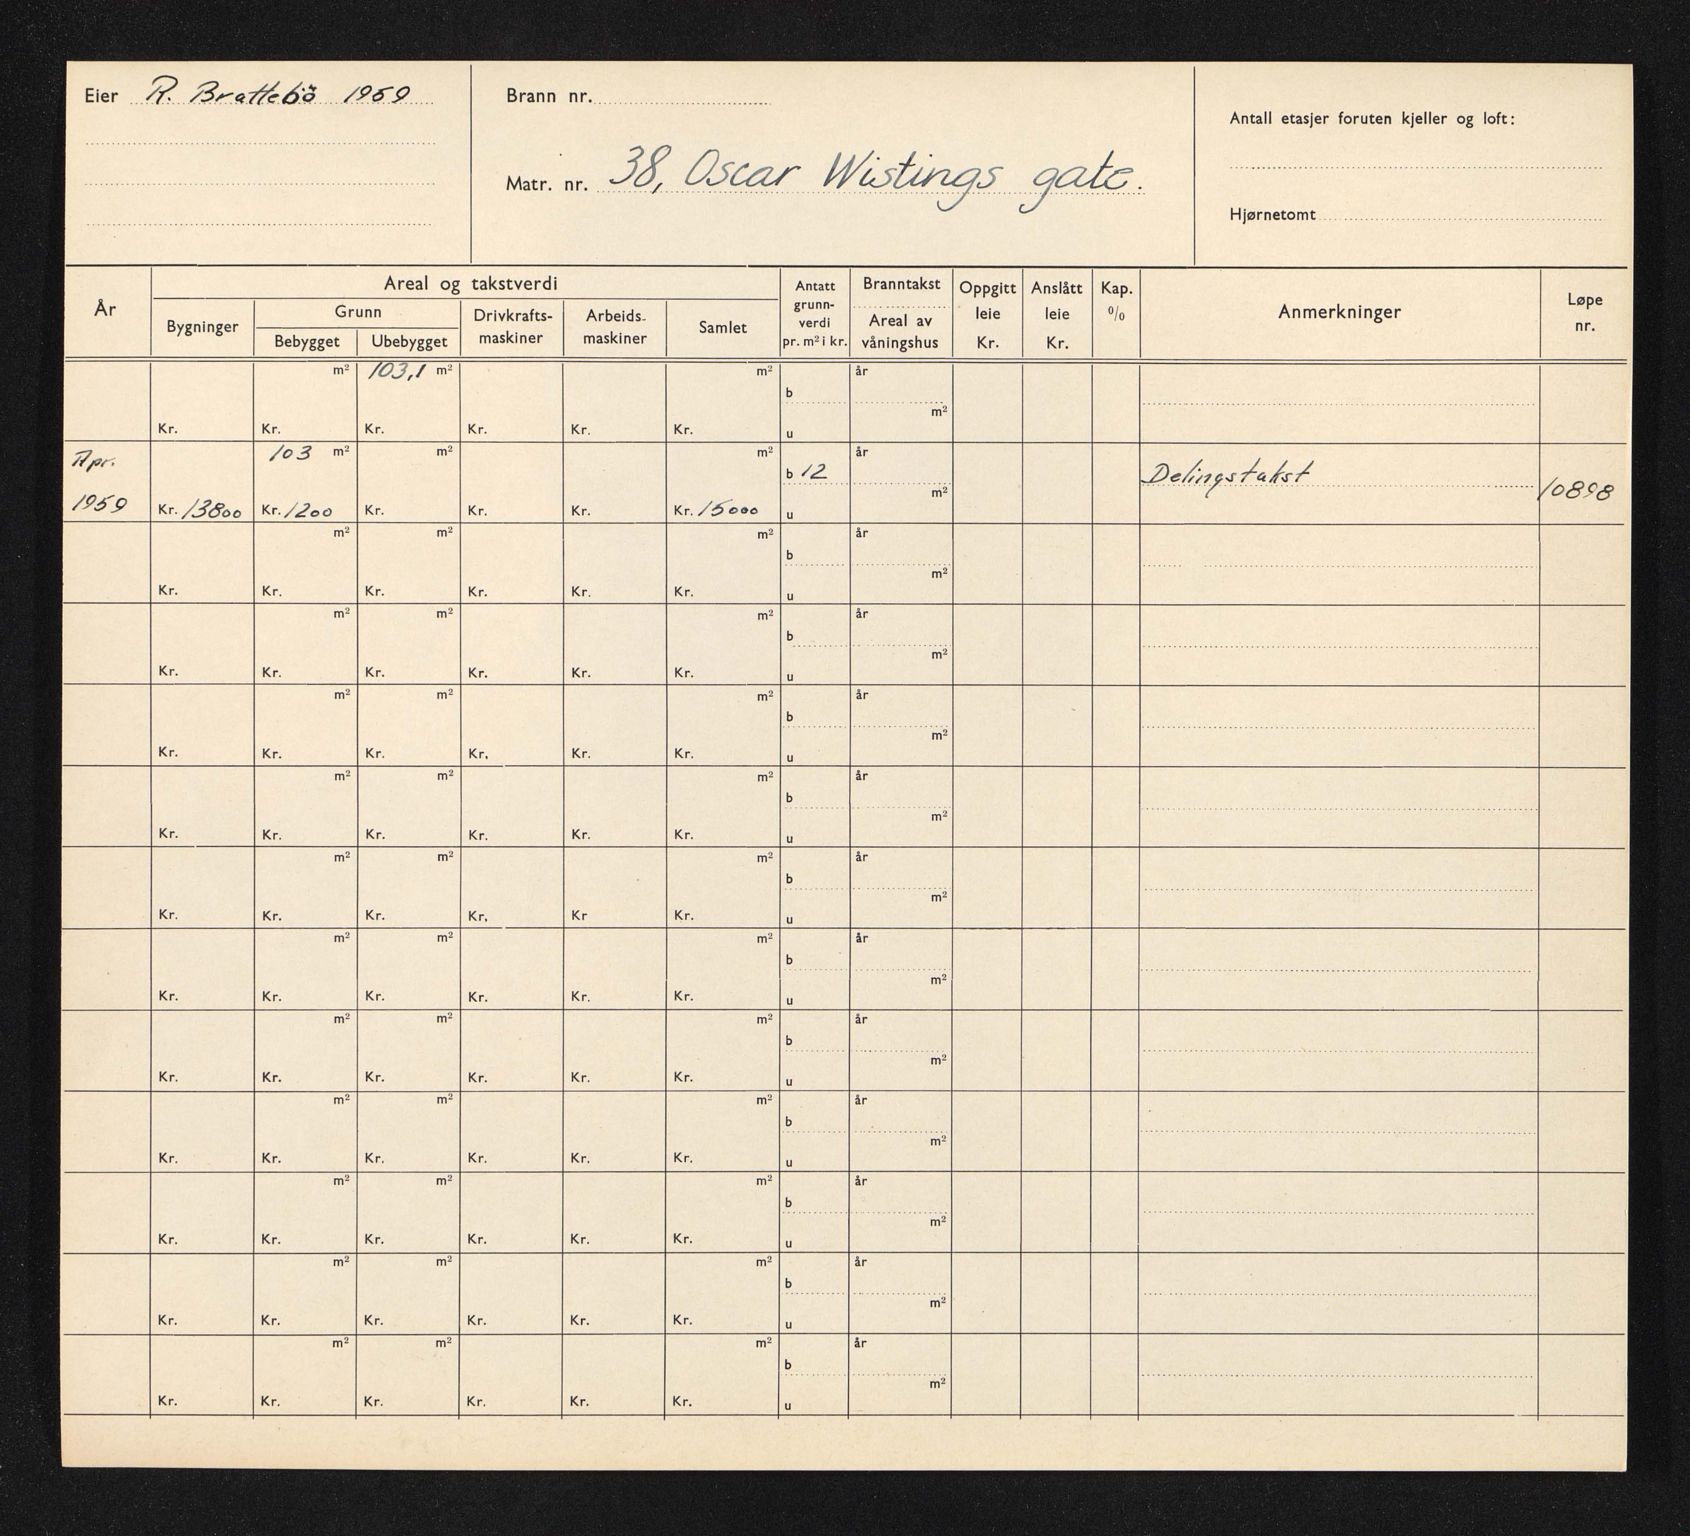 Eier R. Brattebö 1959
Brann nr.
Matr. nr. 38, Oscar Wistings gate.
Antall etasjer foruten kjeller og loft:
Hjørnetomt
År
Areal og takstverdi
Bygninger
Grunn
Bebygget
Ubebygget
Drivkrafts-
maskiner
Arbeids-
maskiner
Samlet
Antatt
grunn-
verdi
pr. m² i kr.
Branntakst
Areal av
våningshus
Oppgitt
leie
Kr.
Anslått
leie
Kr.
Kap.
%
Anmerkninger
Løpe
nr.
m² 103,1 m² m² år
b
m²
Kr. Kr. Kr. Kr. Kr. Kr. u
Apr. 103 m² m² m² år
b 12 Delingstakst 10898
m²
1959 Kr. 13800 Kr. 1200 Kr. Kr. Kr. Kr. 15000 u
m² m² m² år
b
m²
Kr. Kr. Kr. Kr. Kr. Kr. u
m² m² m² år
b
m²
Kr. Kr. Kr. Kr. Kr. Kr. u
m² m² m² år
b
m²
Kr. Kr. Kr. Kr. Kr. Kr. u
m² m² m² år
b
m²
Kr. Kr. Kr. Kr. Kr. Kr. u
m² m² m² år
b
m²
Kr. Kr. Kr. Kr. Kr Kr. u
m² m² m² år
b
m²
Kr. Kr. Kr. Kr. Kr. Kr. u
m² m² m² år
b
m²
Kr. Kr. Kr. Kr. Kr. Kr. u
m² m² m² år
b
m²
Kr. Kr. Kr. Kr. Kr. Kr. u
m² m² m² år
b
m²
Kr. Kr. Kr. Kr. Kr. Kr. u
m² m² m² år
b
m²
Kr. Kr. Kr. Kr. Kr. Kr. u
m² m² m² år
b
m²
Kr. Kr. Kr. Kr. Kr. Kr. u